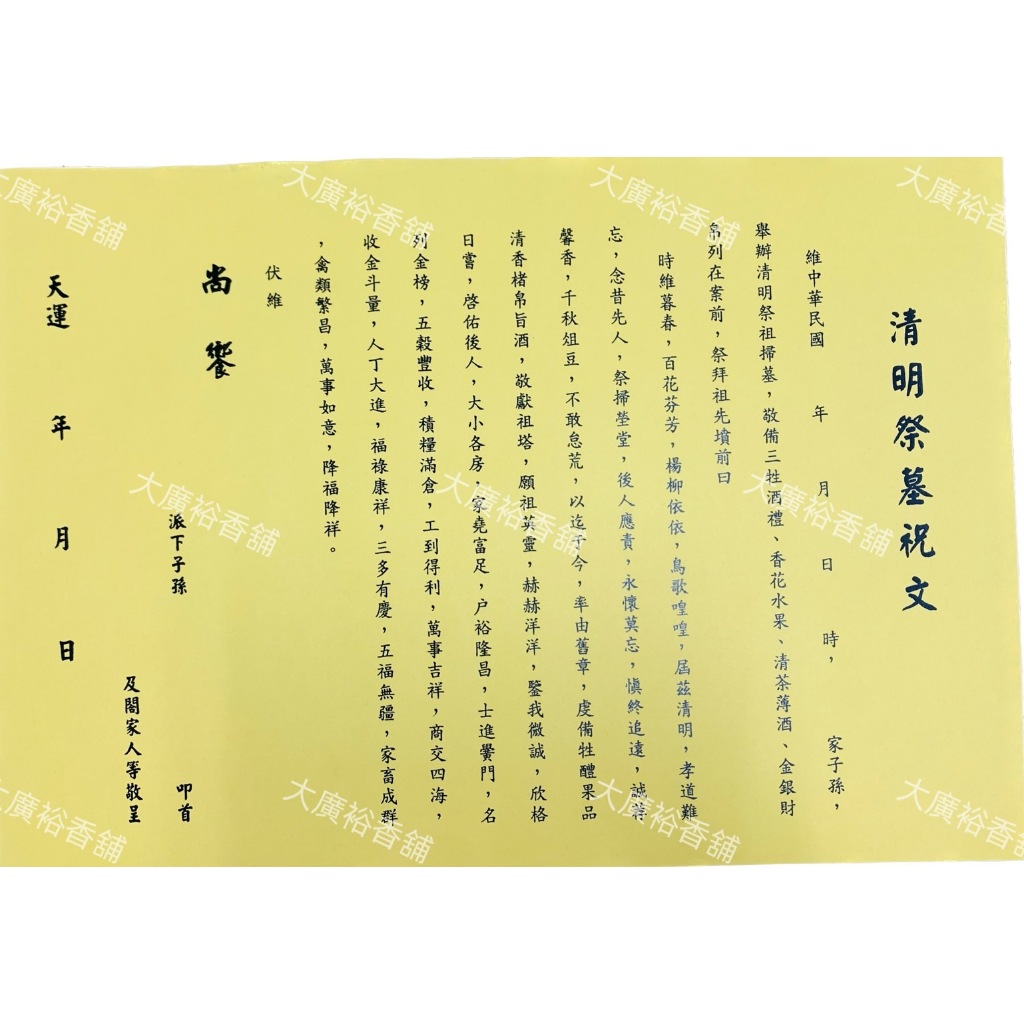 清明祭墓祝文
維中華民國　年　月　日　時，　家子孫，
舉辦清明祭祖掃墓，敬備三牲酒禮、香花水果、清茶薄酒、金銀財
帛列在案前，祭拜祖先墳前曰
時維暮春，百花芬芳，楊柳依依，鳥歌喤喤，屆茲清明，孝道難
忘，念昔先人，祭掃塋堂，後人應責，永懷莫忘，慎終追遠，誠荐
馨香，千秋俎豆，不敢怠荒，以迄于今，率由舊章，虔備牲醴果品
清香楮帛旨酒，敬獻祖塔，願祖英靈，赫赫洋洋，鑒我微誠，欣格
日嘗，啓佑後人，大小各房，家堯富足，户裕隆昌，士進黌門，名
列金榜，五穀豐收，積糧滿倉，工到得利，萬事吉祥，商交四海，
收金斗量，人丁大進，福祿康祥，三多有慶，五福無疆，家畜成群
，禽類繁昌，萬事如意，降福降祥。
伏維
尚饗
派下子孫　叩首
及閤家人等敬呈
天運　年　月　日
大廣裕香舖
大廣裕香舖
大廣裕香舖
大廣裕香舖
大廣裕香舖
大廣裕香舖
大廣裕香舖
大廣裕香舖
大廣裕香舖
大廣裕香舖
大廣裕香舖